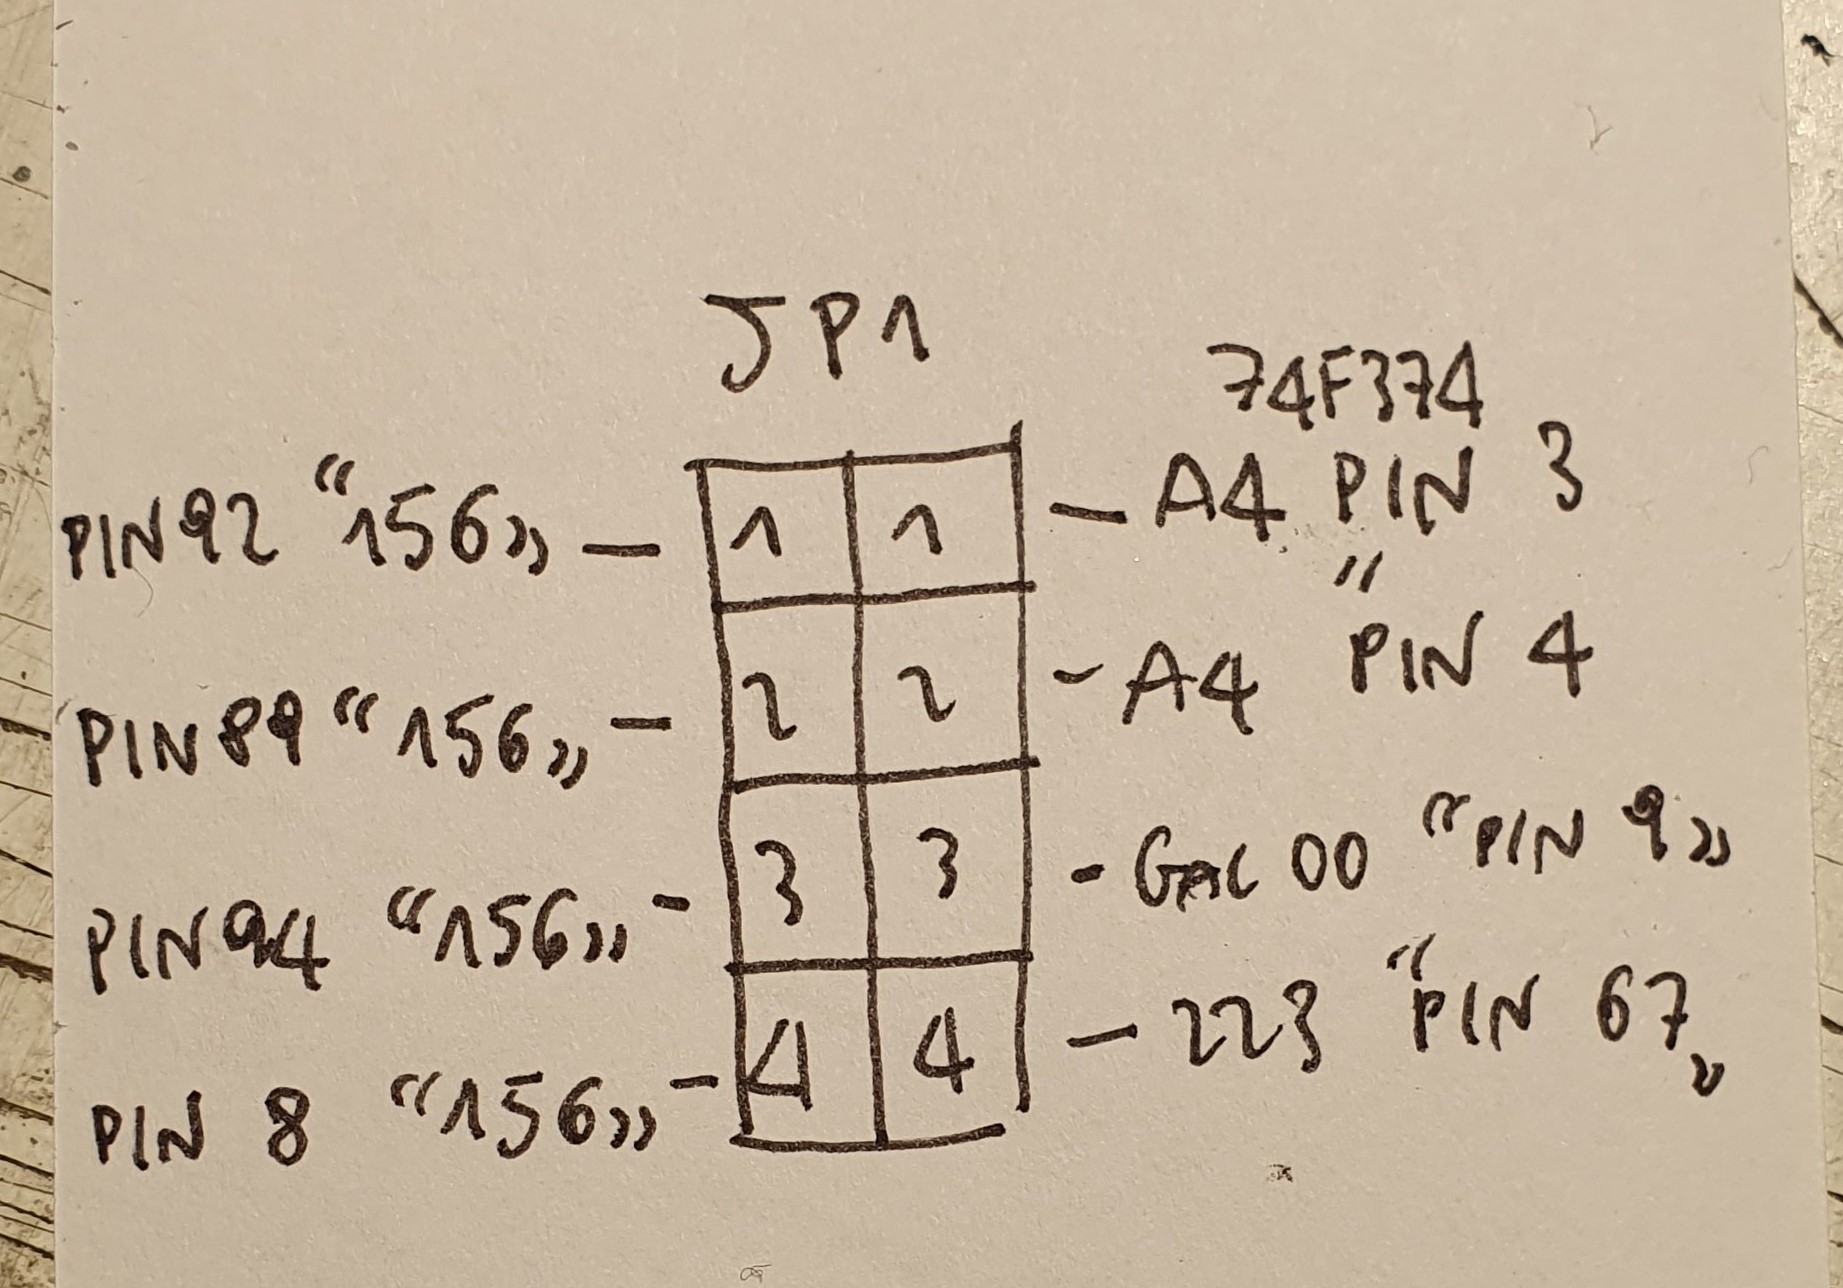 JP1
74F374
PIN 92 "156" — 1 1 — A4 PIN 3
"
PIN 89 "156" — 2 2 - A4 PIN 4
PIN 94 "156" - 3 3 - GAL 00 "PIN 9"
PIN 8 "156" - 4 4 — 223 "PIN 67"